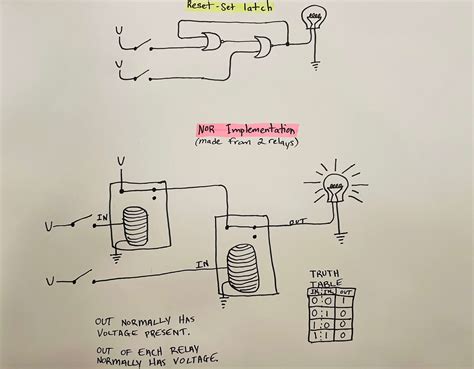 Reset-Set latch
V
V
NOR Implementation
(made from 2 relays)
V
V
IN
OUT
V
IN
TRUTH
TABLE
IN IN OUT
0 0 1
0 1 0
1 0 0
1 1 0
OUT NORMALLY HAS
VOLTAGE PRESENT.
OUT OF EACH RELAY
NORMALLY HAS VOLTAGE.